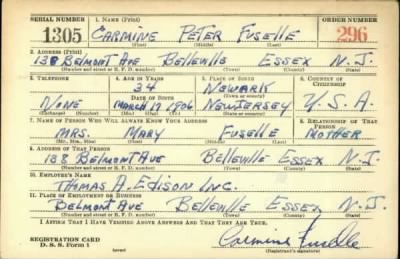 SERIAL NUMBER 1. NAME (Print) ORDER NUMBER
1305 CARMINE PETER FUSELLE 296
(First) (Middle) (Last)
2. ADDRESS (Print)
138 BELMONT AVE BELLEVILLE ESSEX N.J.
(Number and street or R. F. D. number) (Town) (County) (State)
3. TELEPHONE 4. AGE IN YEARS 5. PLACE OF BIRTH 6. COUNTRY OF CITIZENSHIP
34 NEWARK
DATE OF BIRTH (Town or county)
NONE MARCH 19 1906 NEW JERSEY U.S.A.
(Exchange) (Number) (Mo.) (Day) (Yr.) (State or country)
7. NAME OF PERSON WHO WILL ALWAYS KNOW YOUR ADDRESS 8. RELATIONSHIP OF THAT PERSON
MRS. MARY FUSELLE MOTHER
(Mr., Mrs., Miss) (First) (Middle) (Last)
9. ADDRESS OF THAT PERSON
138 BELMONT AVE BELLEVILLE ESSEX N.J.
(Number and street or R. F. D. number) (Town) (County) (State)
10. EMPLOYER'S NAME
THOMAS A. EDISON INC.
11. PLACE OF EMPLOYMENT OR BUSINESS
BELMONT AVE BELLEVILLE ESSEX N.J.
(Number and street or R. F. D. number) (Town) (County) (State)
I AFFIRM THAT I HAVE VERIFIED ABOVE ANSWERS AND THAT THEY ARE TRUE.
REGISTRATION CARD
D. S. S. Form 1 (over) Carmine Fuselle
(Registrant's signature)